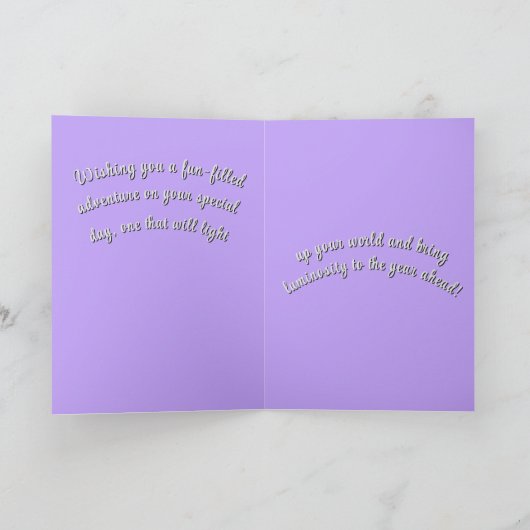 Wishing you a fun-filled
adventure on your special
day, one that will light
up your world and bring
luminosity to the year ahead!